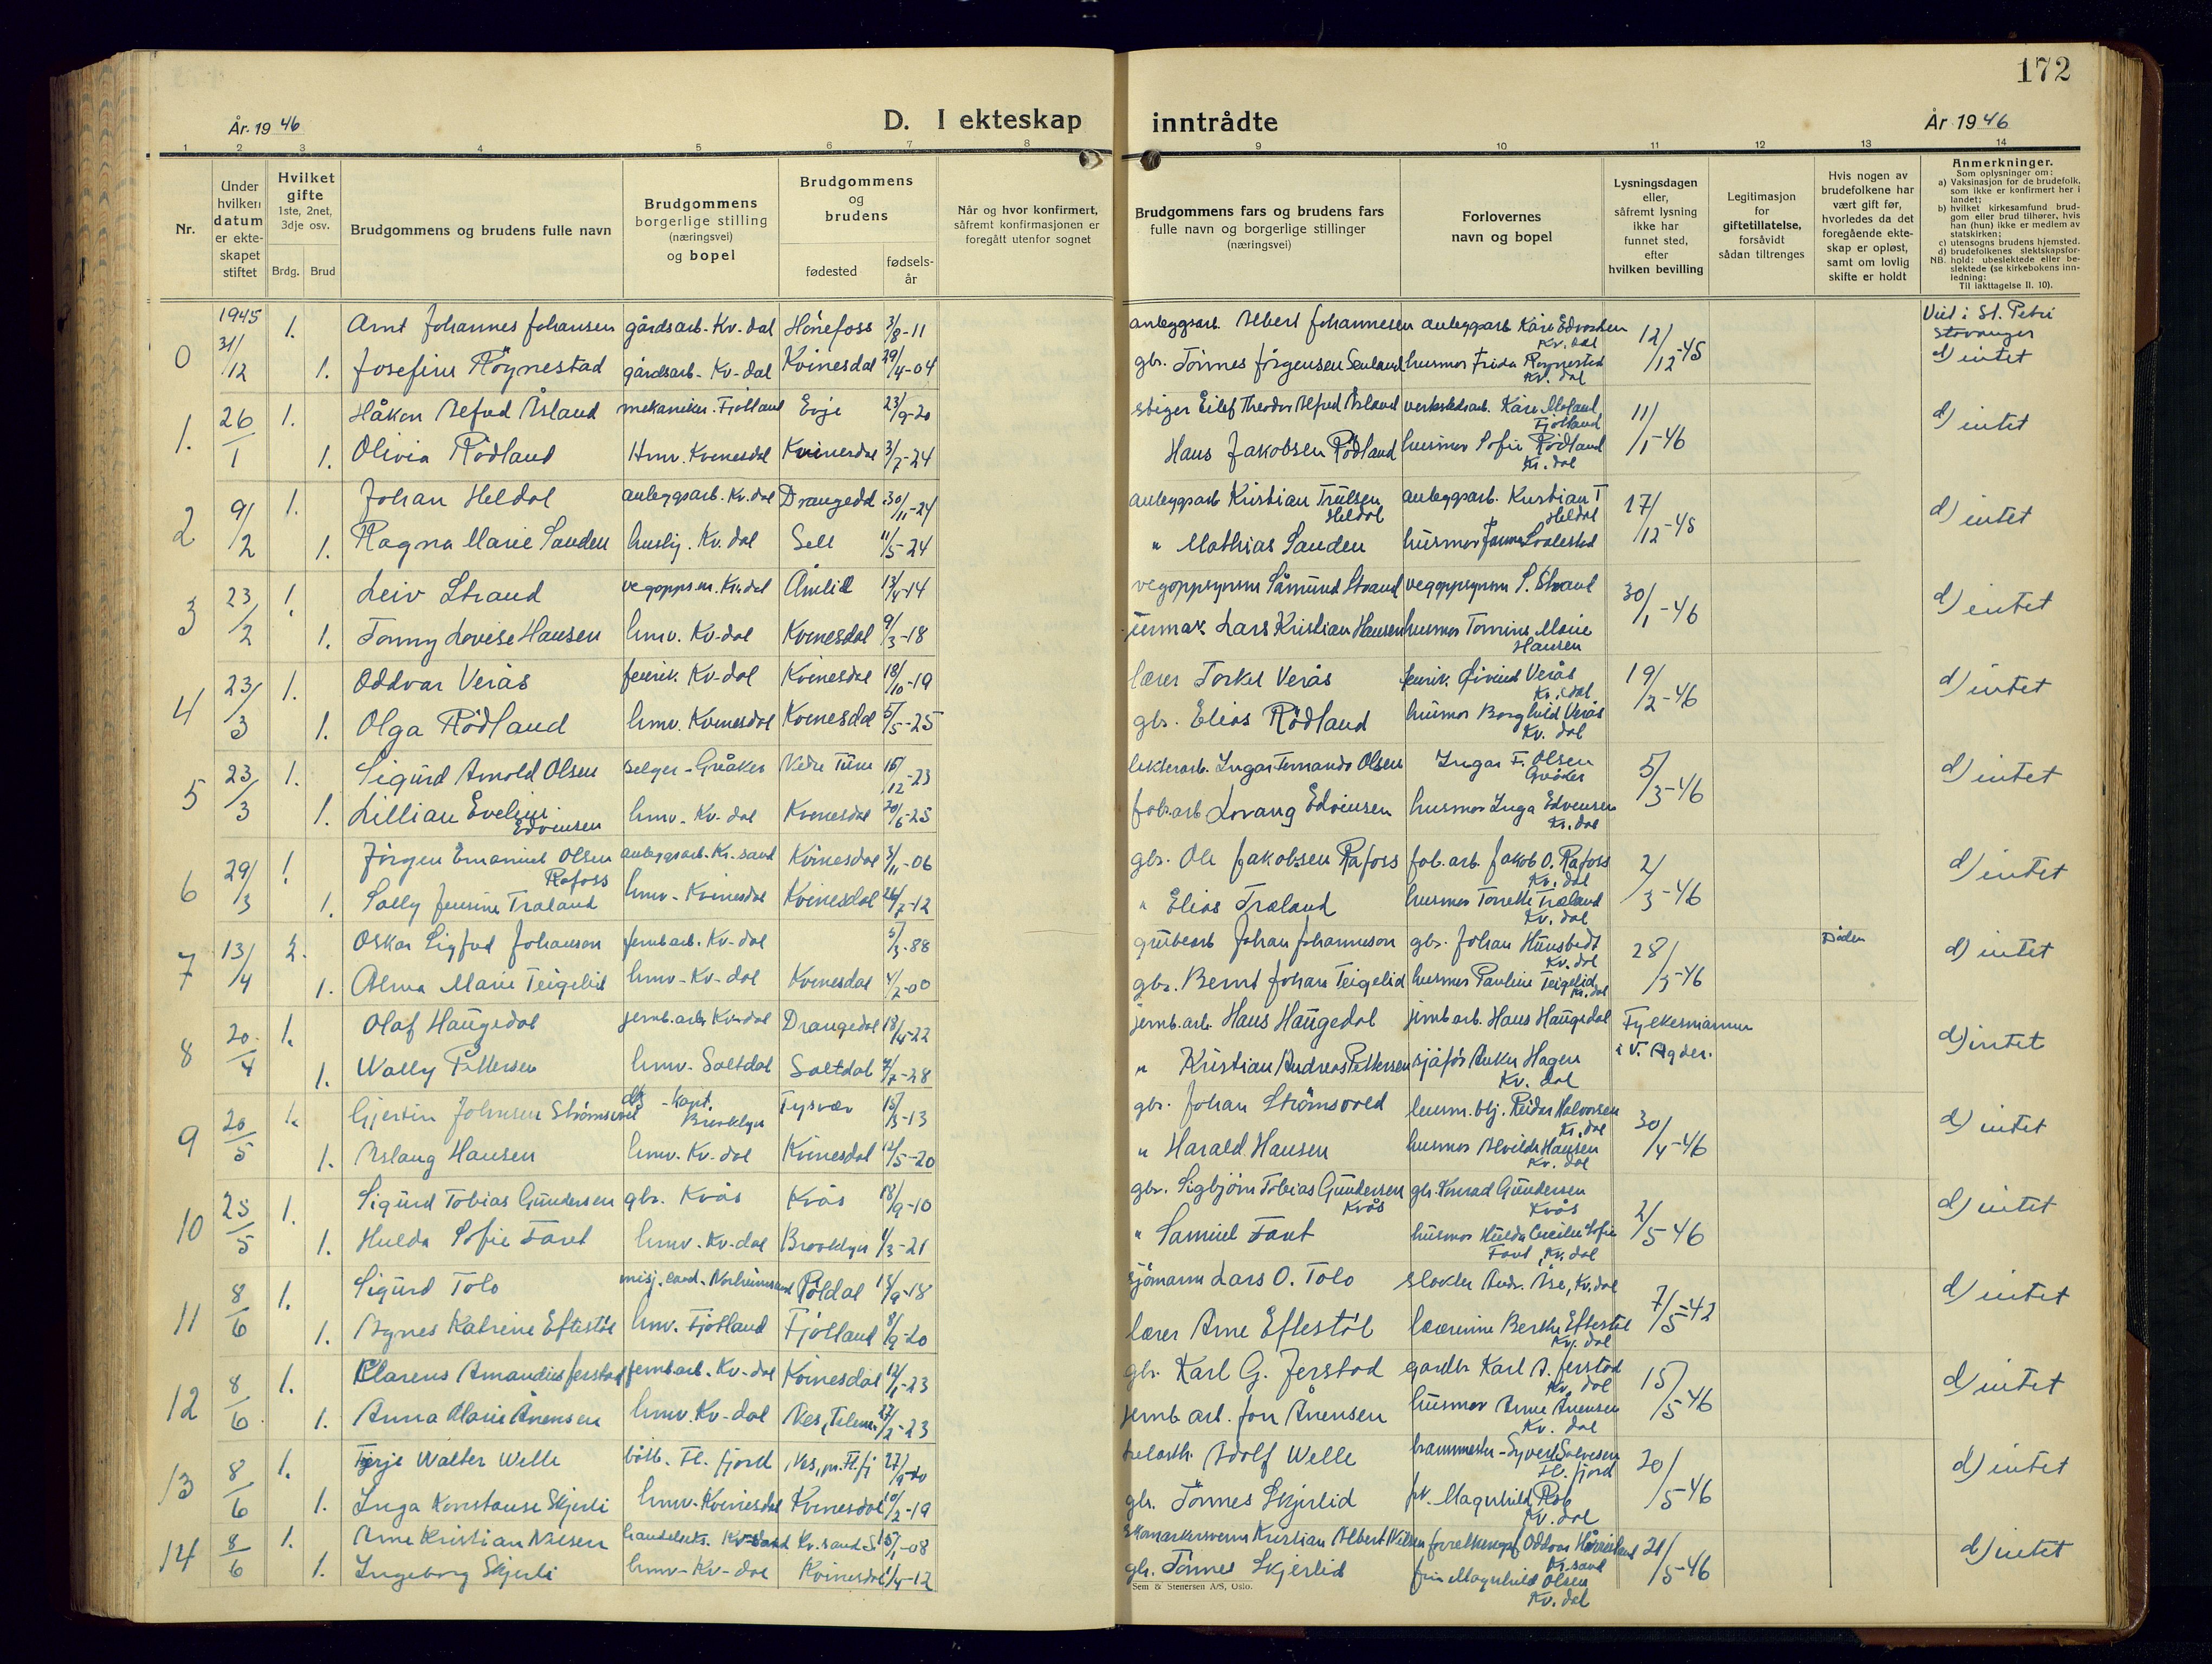 172
År. 19 46
D. I ekteskap inntrådte
År 19 46
1 2 3 4 5 6 7 8 9 10 11 12 13 14
Nr.
Under hvilken datum er ekteskapet stiftet
Hvilket gifte
1ste, 2net, 3dje osv.
Brdg. Brud
Brudgommens og brudens fulle navn
Brudgommens borgerlige stilling (næringsvei) og bopel
Brudgommens og brudens
fødested
fødselsår
Når og hvor konfirmert, såfremt konfirmasjonen er foregått utenfor sognet
Brudgommens fars og brudens fars fulle navn og borgerlige stillinger (næringsvei)
Forlovernes navn og bopel
Lysningsdagen eller, såfremt lysning ikke har funnet sted, efter hvilken bevilling
Legitimasjon for giftetillatelse, forsåvidt sådan tiltrenges
Hvis nogen av brudefolkene har vært gift før, hvorledes da det foregående ekteskap er opløst, samt om lovlig skifte er holdt
Anmerkninger.
Som oplysninger om:
a) Vaksinasjon for de brudefolk, som ikke er konfirmert her i landet;
b) hvilket kirkesamfund brudgom eller brud tilhører, hvis han (hun) ikke er medlem av statskirken;
c) utensogns brudens hjemsted.
d) brudefolkenes slektskapsforhold: ubeslektede eller beslektede (se kirkebokens innledning:
NB.
Til iakttagelse II. 10).
0 1945 31/12 1. Arnt Johannes Johansen gårdsarb. Kv. dal Hönefoss 3/8-11 anleggsarb. Albert Johannesen anleggsarb Kåre Edvardsen Kv. dal 12/12-45 Viet i St. Petri Stavanger
1. Josefine Röynestad gårdsarb. Kv-dal Kvinesdal 29/4-04 gbr. Tönnes Jörgensen husmor Frida Röynestad Kv. dal d) intet
1. 26/1 1. Håkon Alfred Åsland mekaniker. Fjotland Evje 23/9-20 stiger Eilef Theodor Alfred Åsland verkstedarb. Kåre Fjotland 11/1-46 d) intet
1. Olivia Rödland Hmv. Kvinesdal Kvinesdal 3/7-24 Hans Jakobsen Rödland husmor Sofie Rödland Kv. dal
2 9/2 1. Johan Heldal anleggsarb. Kv. dal Drangedal 30/11-24 anleggsarb Kristian Trulsen Heldal anleggsarb. Kristian T Heldal 17/12-45 d) intet
1. Ragna Marie Sanden huslig. Kv. dal Sell 11/5-24 " Mathias Sanden husmor
3 23/2 1. Leiv Strand vegopps. Kv. dal Åmlid 13/4-14 vegoppsynsm Såmund Strand vegoppsynsm S. Strand 30/1-46 d) intet
1. Tonny Lovise Hansen hmv. Kv-dal Kvinesdal 9/3-18 Lars Kristian Hansen husmor Tomine Marie Hansen
4 23/3 1. Oddvar Verås fenrik. Kv-dal Kvinesdal 18/10-19 lærer Torkel Verås fenrik. Øivind Verås Kv. dal 19/2-46 d) intet
1. Olga Rödland hmv. Kvinesdal Kvinesdal 5/5-25 gbr. Elias Rödland husmor Borghild Verås Kv. dal
5 23/3 1. Sigurd Arnold Olsen selger - Gråker Nedre Tune 15/12-23 Ingar Fernando Olsen Ingar F. Olsen Gråker 5/3-46 d) intet
1. Lillian Eveline Edvinsen hmv. Kv-dal Kvinesdal 20/6-25 fab.arb Lovang Edvinsen husmor Inga Edvinsen Kv. dal
6 29/3 1. Jörgen Emanuel Olsen Rafoss anleggsarb. Kr. sand Kvinesdal 3/11-06 gbr. Ole Jakobsen Rafoss fab. arb. Jakob O. Rafoss Kv. dal 2/3-46 d) intet
1. Solly Jensine Træland hmv. Kvinesdal Kvinesdal 26/7-12 " Elias Træland husmor Tonette Træland Kv. dal
7 13/4 2. Oskar Sigfred Johanson jernbarb. Kv-dal 5/3-88 grubearb Johan Johanneson gbr. Johan Hunsbedt Kv. dal 28/3-46 Döden d) intet
1. Alma Marie Teigelid hmv-Kv-dal Kvinesdal 4/2-00 gbr. Bernt Johan Teigelid husmor Pauline Teigelid Kv. dal
8 20/4 1. Olaf Haugedal jernb.arb. Kv-dal Drangedal 18/4-22 jernb.arb. Hans Haugedal jernb arb. Hans Haugedal Fylkesmannen i V. Agder. d) intet
1. Wally Pettersen hmv. Saltdal Saltdal 7/7-28 " Kristian Andreas Pettersen sjåför Anker Hagen Kv. dal
9 20/5 1. Gjertin Johnsen Strömsvold kapt. Brooklyn Tysvær 15/3-13 gbr. Johan Strömsvold Reidar Halvorsen Kv. dal 30/4-46 d) intet
1. Aslaug Hansen hmv. Kv-dal Kvinesdal 12/5-20 " Harald Hansen husmor Alvilde Hansen Kv. dal
10 25/5 1. Sigurd Tobias Gundersen gbr. Kvås Kvås 18/9-10 gbr. Sigbjörn Tobias Gundersen Kvås gbr. Konrad Gundersen Kvås 2/5-46 d) intet
1. Hulda Sofie Fant hmv. Kv-dal Brooklyn 4/3-21 " Samuel Fant husmor Hulda Cecilie Sofie Fant, Kv. dal
11 8/6 1. Sigurd Tolo misj. cand. Norheimsund Röldal 15/9-18 sjömann Lars O. Tolo slakter Andr. Åse, Kv. dal 7/5-42 d) intet
1. Agnes Katrine Eftestöl hmv. Fjotland Fjotland 8/9-20 lærer Arne Eftestöl lærerinne Berthe Eftestöl Kv. dal
12 8/6 1. Klarens Amandius Jerstad jernb.arb. Kv-dal Kvinesdal 12/1-23 gbr. Karl G. Jerstad gardbr Karl A. Jerstad Kv. dal 15/5-46 d) intet
1. Anna Marie Ånensen hmv. Kv-dal Nes, Telem. 27/2-23 jernb arb. Jon Ånensen husmor Anne Ånensen Kv. dal
13 8/6 1. Terje Walter Welle båtb. Fl. fjord Nes, pr. Fl. fj 27/9-20 Adolf Welle Syvert Salvesen Fl. fjord 20/5-46 d) intet
1. Inga Konstanse Skjerli hmv. Kvinesdal Kvinesdal 10/2-19 gbr. Tönnes Skjerlid frk. Magnhild Rob Kv. dal
14 8/6 1. Arne Kristian Nilsen Kr. sand S 15/1-08 skomakersvenn Kristian Albert Nilsen Oddvar Kr.sand 21/5-46 d) intet
1. Ingeborg Skjerli hmv-Kv-dal Kvinesdal 1/4-12 gbr. Tönnes Skjerlid fru Magnhild Olsen Kv. dal
Sem & Stenersen A/S, Oslo.